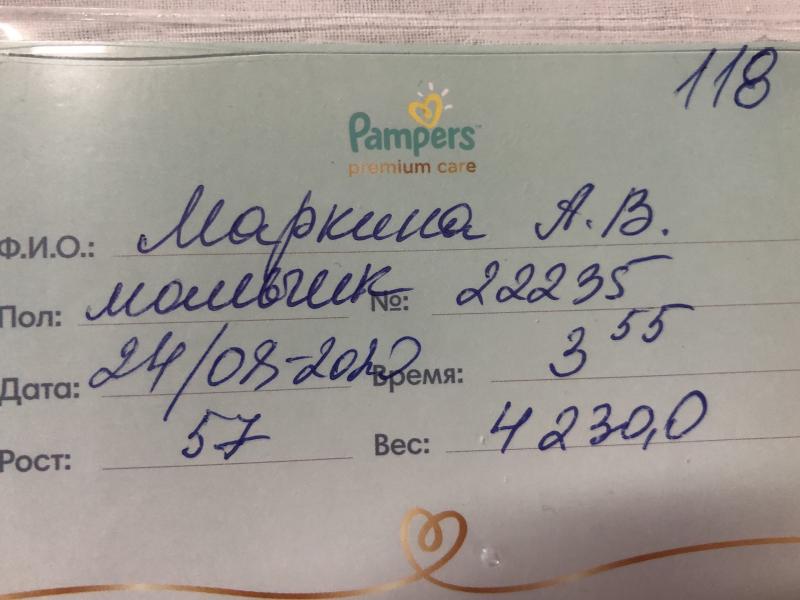 118
Pampers™
premium care
Ф.И.О.: Маркина А.В.
Пол: мальчик №: 22235
Дата: 24/08-2020 Время: 3 55
Рост: 57 Вес: 4230,0